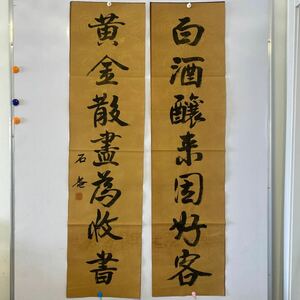 白酒釀来因好客
黃金散盡為收書
石庵